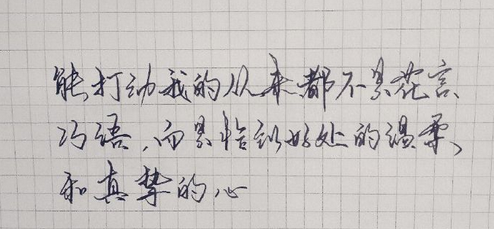 能打动我的从来都不是花言
巧语,而是恰到好处的温柔、
和真挚的心